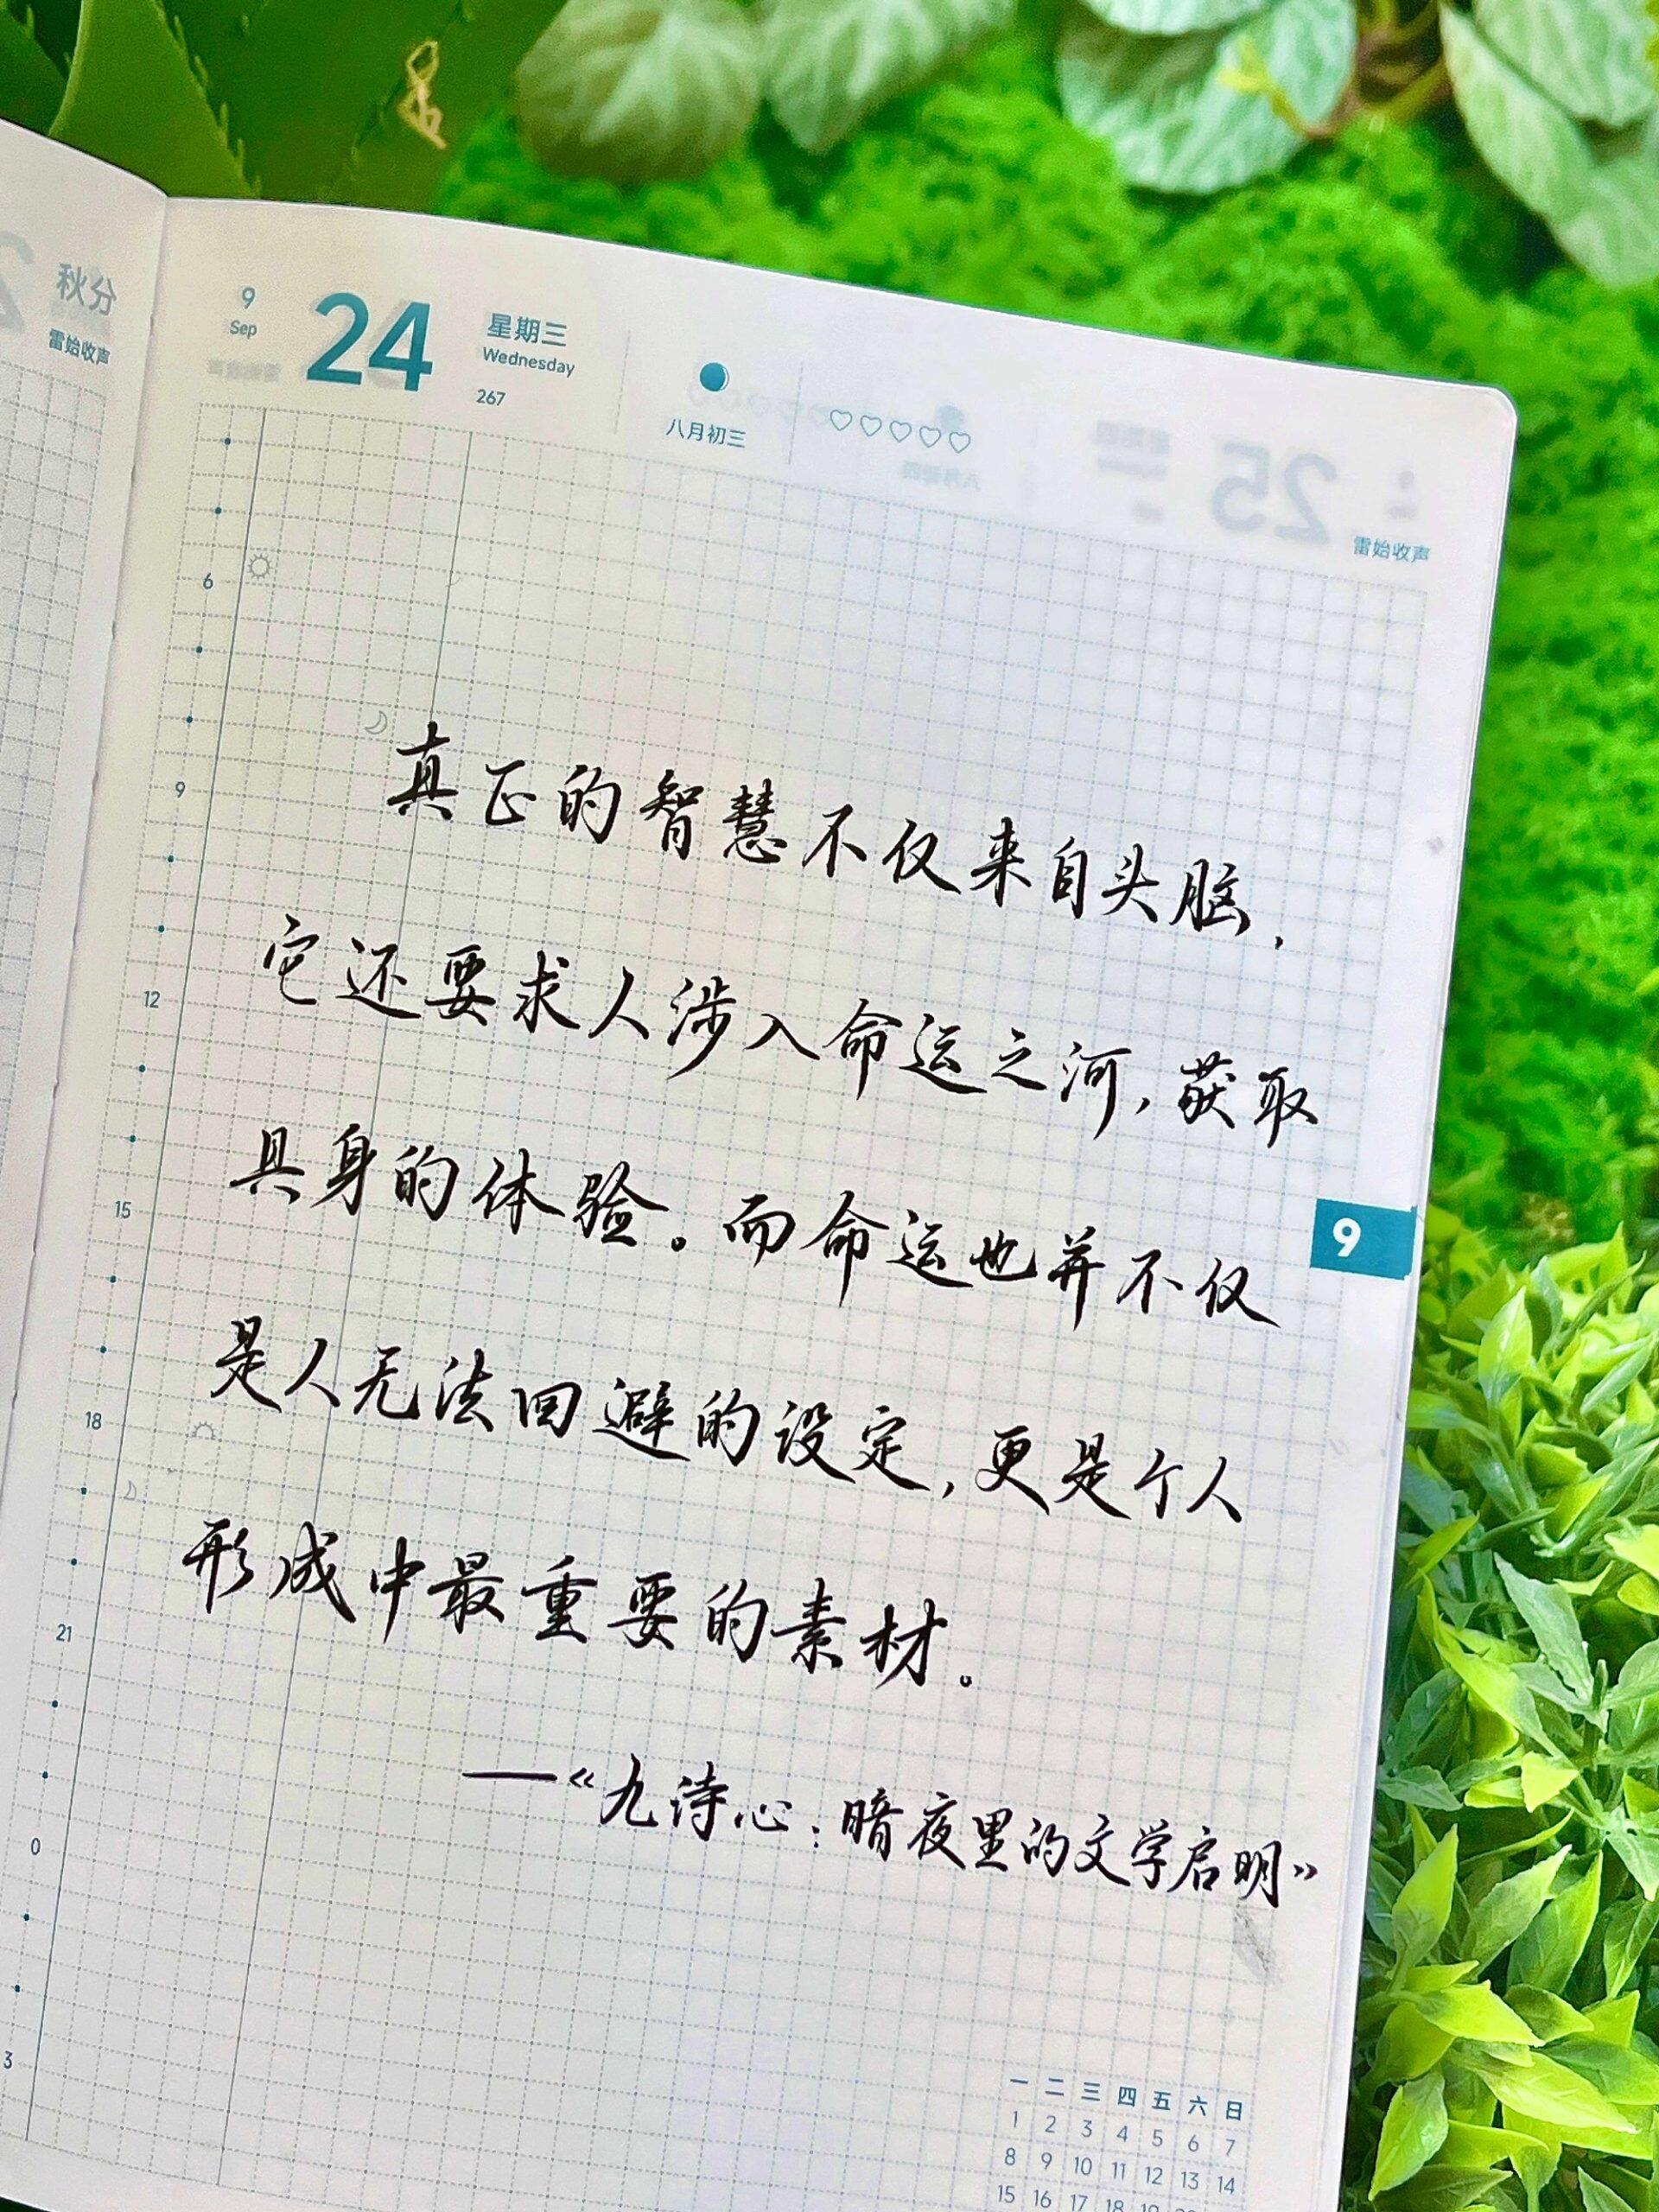 秋分
雷始收声
9
Sep
24
星期三
Wednesday
267
八月初三
25
雷始收声
6
9
12
15
18
21
0
3
真正的智慧不仅来自头脑，
它还要求人涉入命运之河，获取
具身的体验。而命运也并不仅
是人无法回避的设定，更是个人
形成中最重要的素材。
——《九诗心：暗夜里的文学启明》
9
一 二 三 四 五 六 日
1 2 3 4 5 6 7
8 9 10 11 12 13 14
15 16 17 18 19